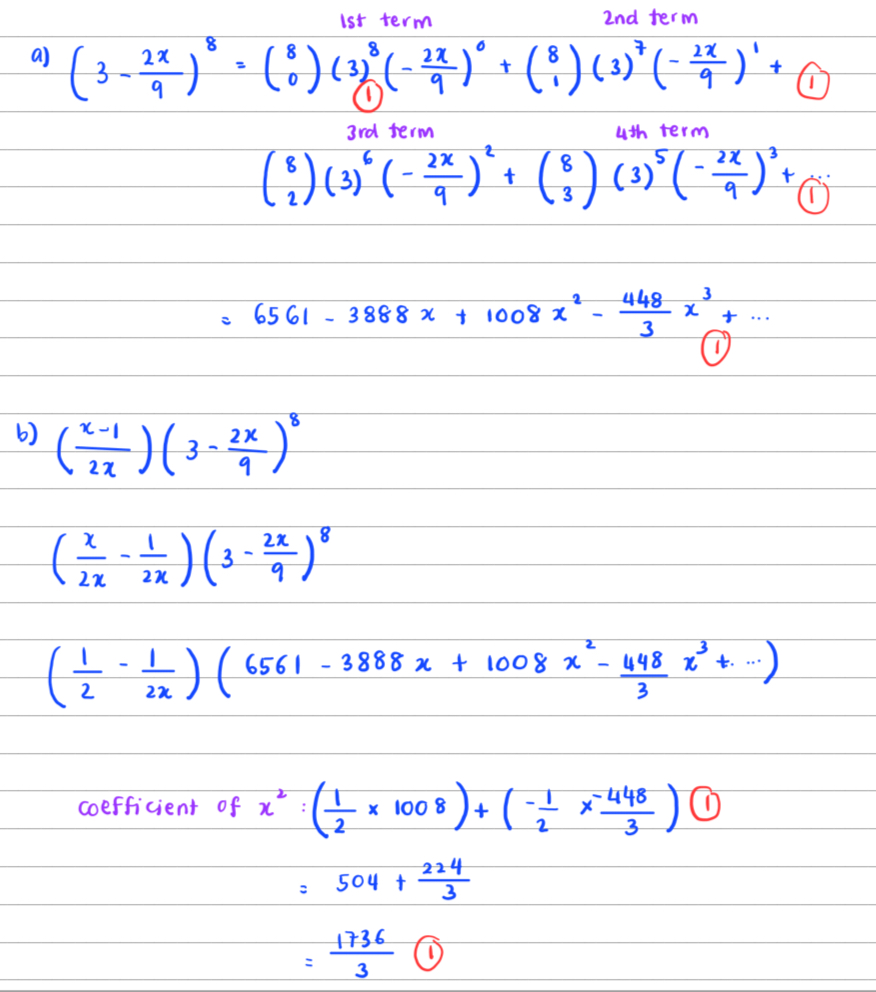 1st term 2nd term
a) (3 - 2x/9)^8 = (8 0)(3)^8(-2x/9)^0 + (8 1)(3)^7(-2x/9)^1 + ①
①
3rd term 4th term
(8 2)(3)^6(-2x/9)^2 + (8 3)(3)^5(-2x/9)^3 + ...
①
= 6561 - 3888x + 1008x^2 - 448/3 x^3 + ...
①
b) (x-1/2x)(3 - 2x/9)^8
(x/2x - 1/2x)(3 - 2x/9)^8
(1/2 - 1/2x)(6561 - 3888x + 1008x^2 - 448/3 x^3 + ...)
coefficient of x^2 : (1/2 × 1008) + (-1/2 × -448/3) ①
= 504 + 224/3
= 1736/3 ①